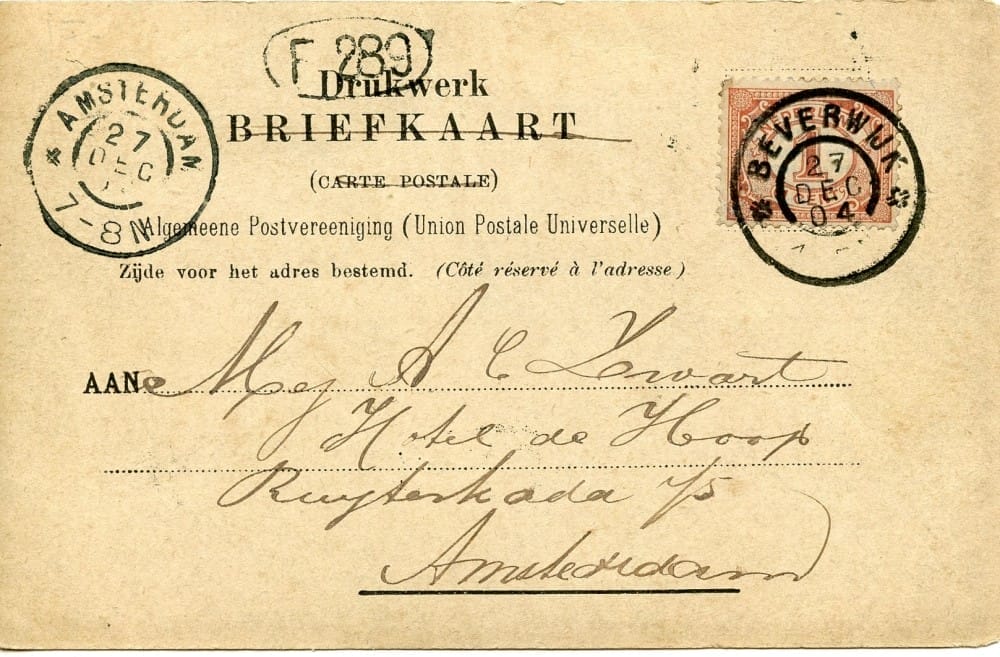 F 289
Drukwerk
BRIEFKAART
(CARTE POSTALE)
Algemeene Postvereeniging (Union Postale Universelle)
Zijde voor het adres bestemd. (Côté réservé à l'adresse)
AMSTERDAM
27
DEC
7-8 N
BEVERWIJK
27
DEC
04
1
AAN Mej A C Zwart
Hotel de Hoop
Ruyterkada 75
Amsterdam